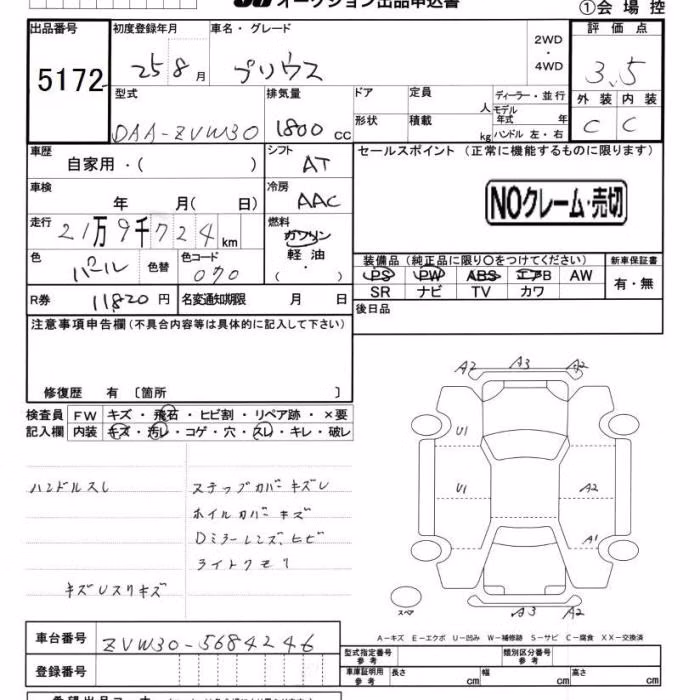 オークション出品申込書
①会場控
出品番号 初度登録年月 車名・グレード 評価点
5172 25 8月 プリウス 2WD・4WD 3.5
型式 排気量 ドア 定員 人 ディーラー・並行 外装 内装
DAA-ZVW30 1800 cc 形状 積載 kg モデル年式 年 ハンドル 左・右 C C
車歴 シフト セールスポイント (正常に機能するものに限ります)
自家用・( ) AT
車検 冷房
年 月( 日) AAC NOクレーム・売切
走行 燃料
21万9千724km ガソリン
軽油
・( )
色 色替 色コード 装備品(純正品に限り○をつけてください) 新車保証書
パール 070 PS PW ABS エアB AW 有・無
SR ナビ TV カワ
R券 11820円 名変通知期限 月 日 後日品
注意事項申告欄(不具合内容等は具体的に記入して下さい)
修復歴 有 〔箇所 〕
検査員 FW キズ・飛石・ヒビ割・リペア跡・×要
記入欄 内装 キズ・汚レ・コゲ・穴・スレ・キレ・破レ
ハンドルスレ ステップカバーキズレ
ホイルカバーキズ
Dミラーレンズ、ヒビ
ライトクモリ
キズUスリキズ
A2 A3 A2
U1
U1 A2
A1
スペア
A3 A2
A-キズ E-エクボ U-凹み W-補修跡 S-サビ C-腐食 XX-交換済
車台番号 ZVW30-5684246
型式指定番号 参考 類別区分番号 参考
登録番号 車庫証明用 参考 長さ cm 幅 cm 高さ cm